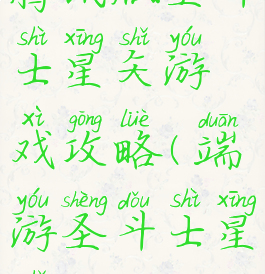 shì xīng shǐ yóu
士星矢游
xì gōng lüè duān
戏攻略(端
yóu shèng dǒu shì xīng
游圣斗士星